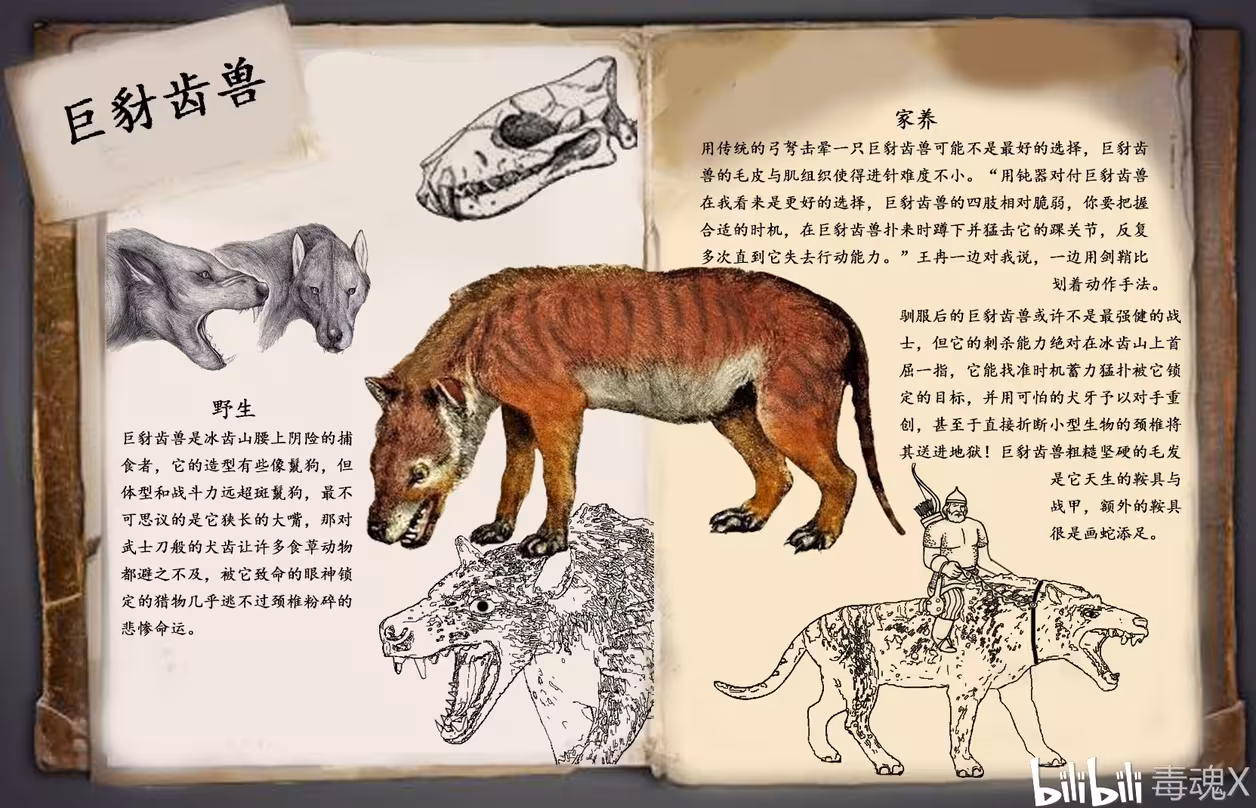 巨豺齿兽
野生
巨豺齿兽是冰齿山腰上阴险的捕
食者，它的造型有些像鬣狗，但
体型和战斗力远超斑鬣狗，最不
可思议的是它狭长的大嘴，那对
武士刀般的犬齿让许多食草动物
都避之不及，被它致命的眼神锁
定的猎物几乎逃不过颈椎粉碎的
悲惨命运。
家养
用传统的弓弩击晕一只巨豺齿兽可能不是最好的选择，巨豺齿
兽的毛皮与肌组织使得进针难度不小。“用钝器对付巨豺齿兽
在我看来是更好的选择，巨豺齿兽的四肢相对脆弱，你要把握
合适的时机，在巨豺齿兽扑来时蹲下并猛击它的踝关节，反复
多次直到它失去行动能力。”王冉一边对我说，一边用剑鞘比
划着动作手法。
驯服后的巨豺齿兽或许不是最强健的战
士，但它的刺杀能力绝对在冰齿山上首
屈一指，它能找准时机蓄力猛扑被它锁
定的目标，并用可怕的犬牙予以对手重
创，甚至于直接折断小型生物的颈椎将
其送进地狱！巨豺齿兽粗糙坚硬的毛发
是它天生的鞍具与
战甲，额外的鞍具
很是画蛇添足。
bilibili 毒魂X